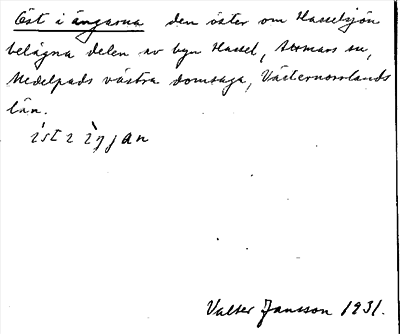 Öst i ängarna den öster om Hasselsjön
belägna delen av byn Hassel, Borgsjö sn,
Medelpads västra domsaga, Västernorrlands
län.
Valter Jansson 1931.